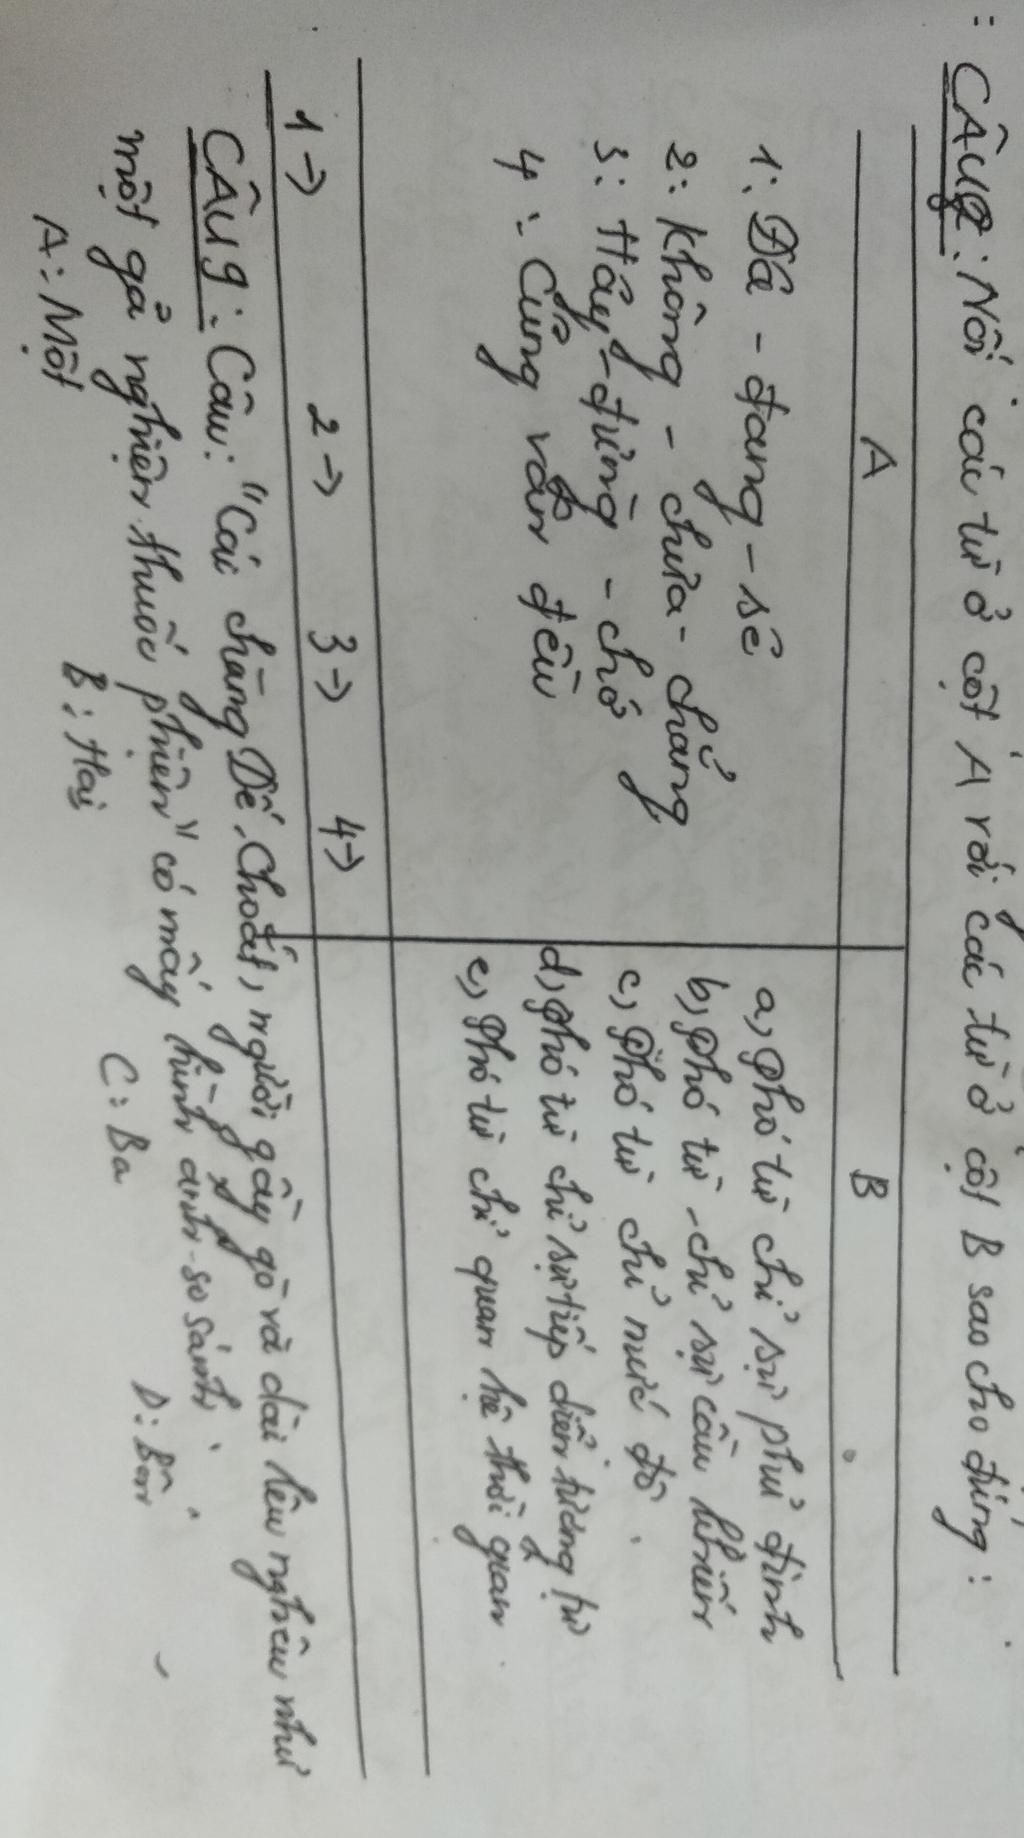 CÂU 8: Nối các từ ở cột A với các từ ở cột B sao cho đúng:
A
B
1: Đã - đang - sẽ
2: Không - chưa - chẳng
3: Hãy - đừng - chớ
4: Cũng vẫn đều
a, Phó từ chỉ sự phủ định
b, Phó từ - chỉ sự cầu khiến
c, Phó từ chỉ mức độ.
d, Phó từ chỉ sự tiếp diễn tương tự
e, Phó từ chỉ quan hệ thời quan.
1 → 2 → 3 → 4 →
CÂU 9: Câu: "Cái chàng Dế, Choắt, người gầy gò và dài lêu nghêu như
một gả nghiện thuốc phiện" có mấy hình ảnh so sánh.
A: Một B: Hai C: Ba D: Bốn